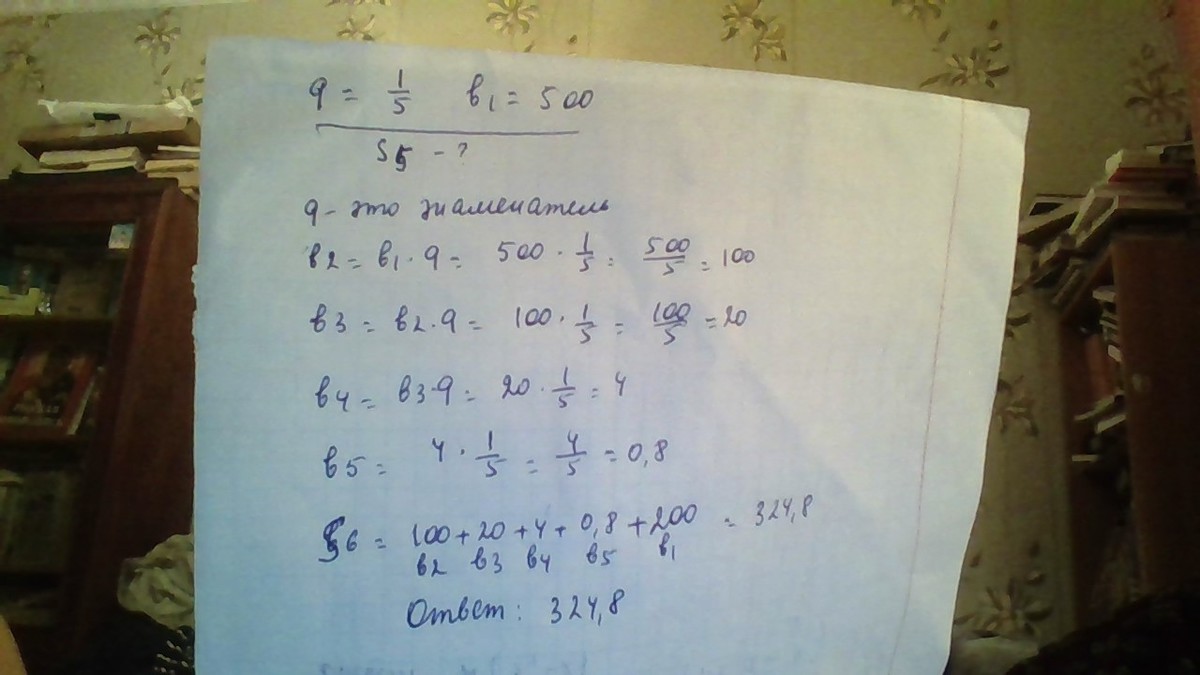 q = 1/5 в1 = 500
S5 - ?
q - это знаменатель
в2 = в1 · q = 500 · 1/5 = 500/5 = 100
в3 = в2 · q = 100 · 1/5 = 100/5 = 20
в4 = в3 · q = 20 · 1/5 = 4
в5 = 4 · 1/5 = 4/5 = 0,8
S6 = 100 + 20 + 4 + 0,8 + 200 = 324,8
в2 в3 в4 в5 в1
Ответ: 324,8